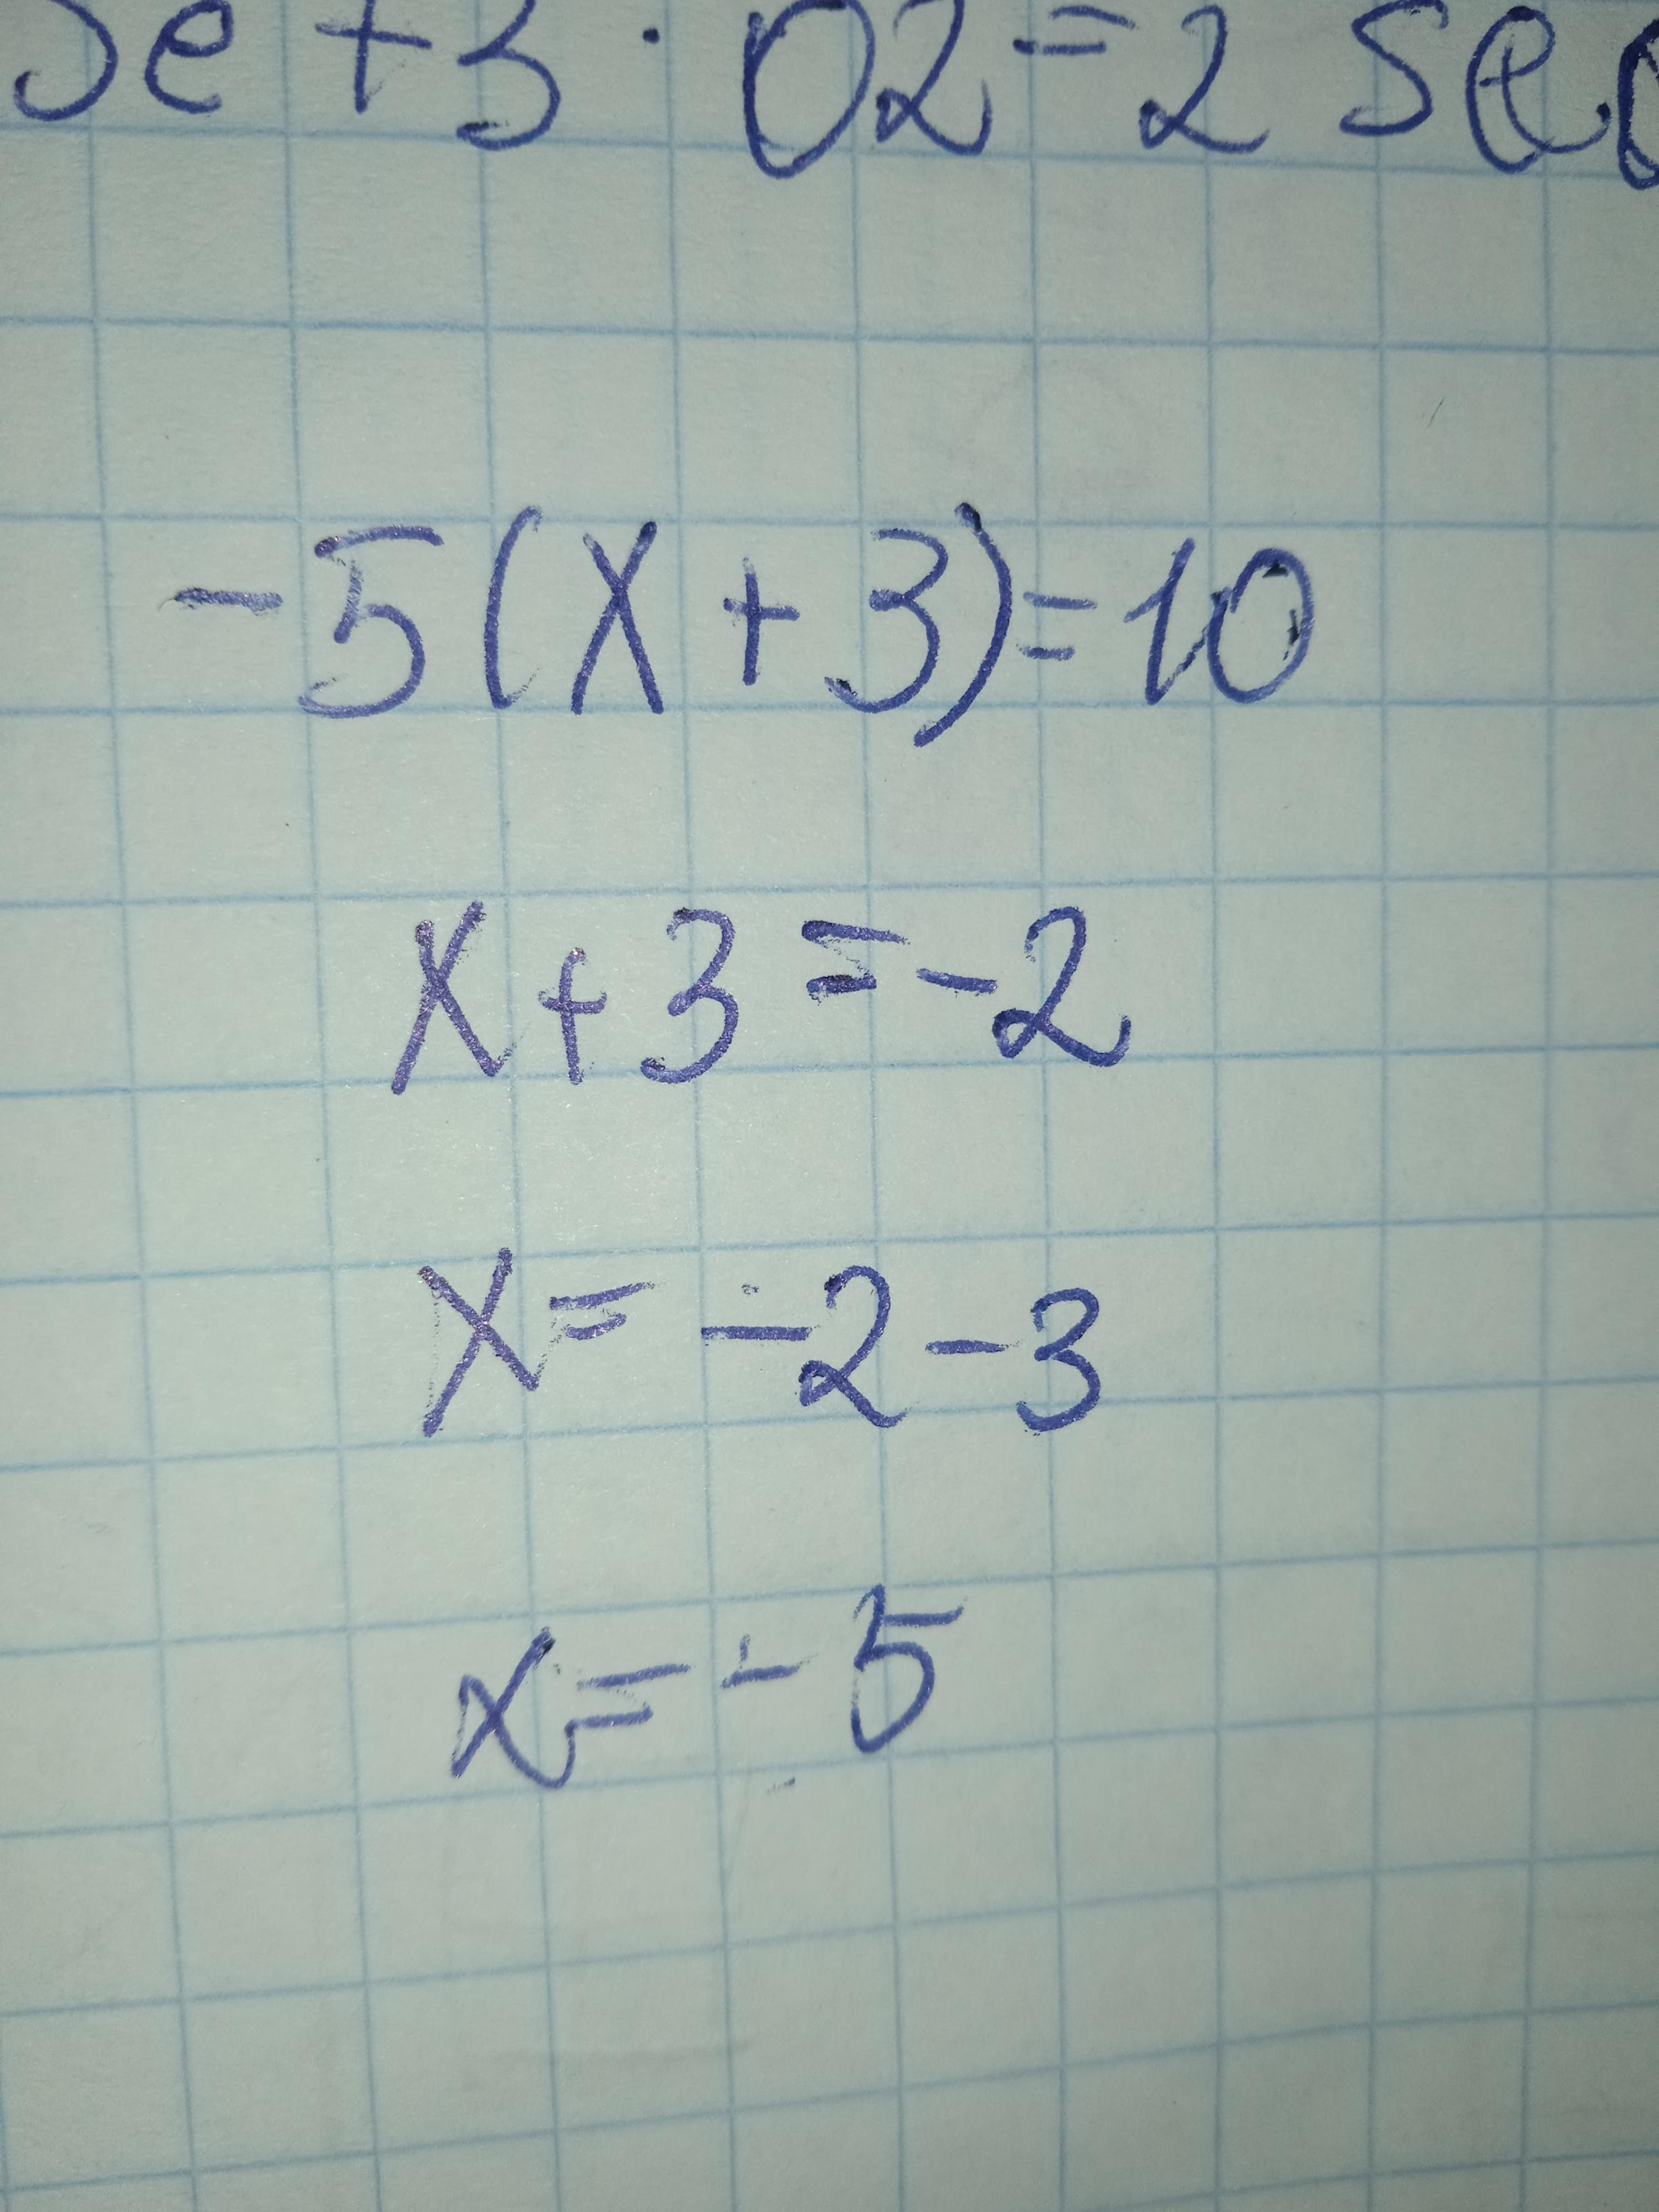 Se + 3 · O2 = 2 SeO
-5(x+3)=10
x+3=-2
x= -2-3
x=-5